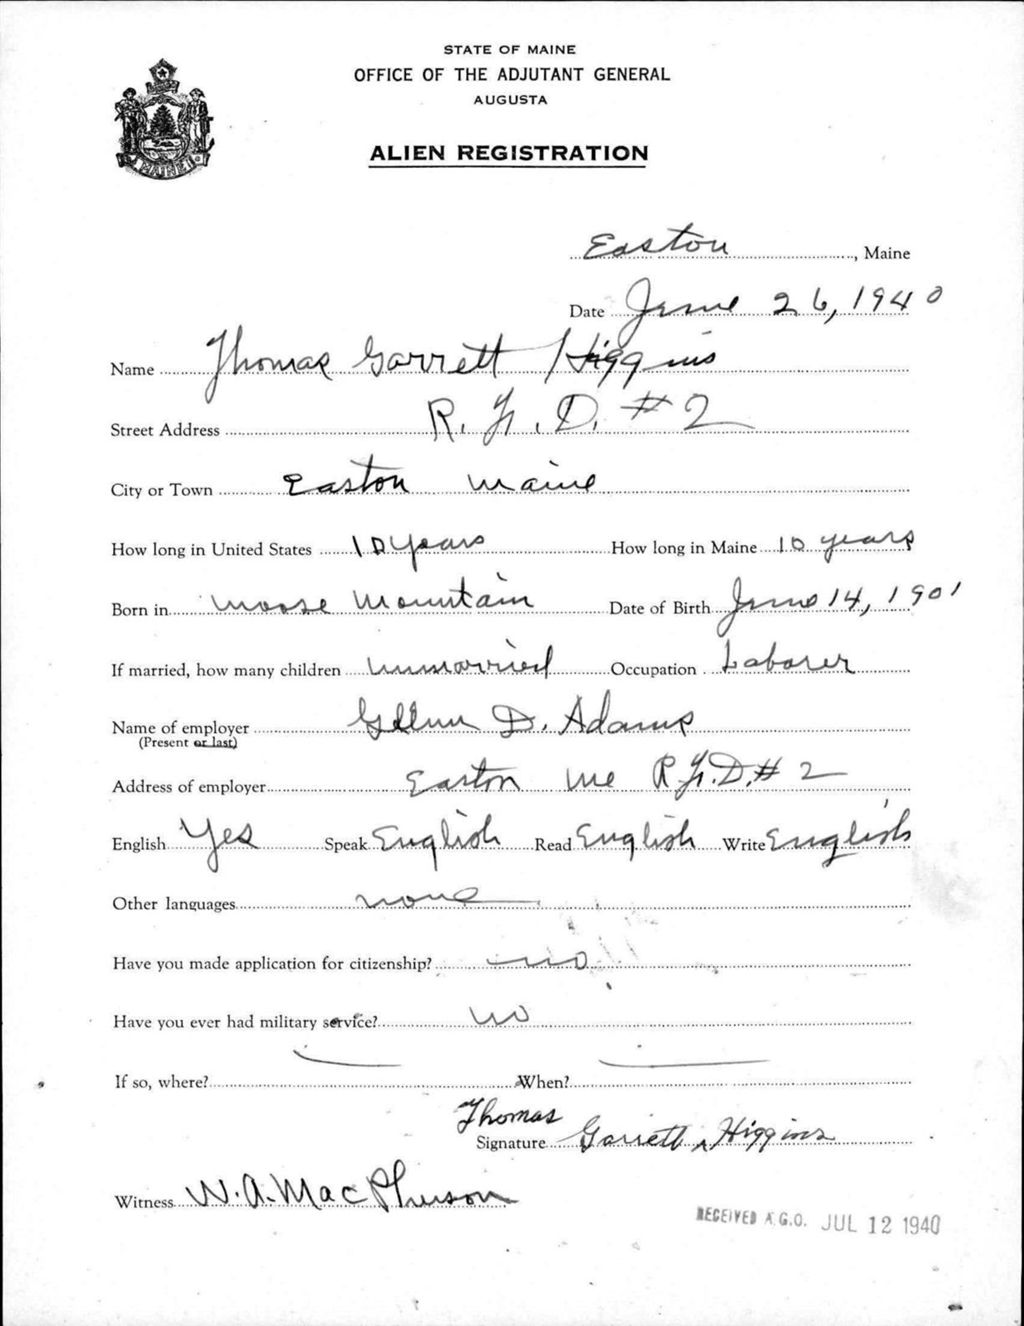 STATE OF MAINE
OFFICE OF THE ADJUTANT GENERAL
AUGUSTA
ALIEN REGISTRATION
MAINE
Easton, Maine
Date June 26, 1940
Name Thomas Garrett Higgins
Street Address R.F.D. #2
City or Town Easton Maine
How long in United States 10 years How long in Maine 10 years
Born in Moose Mountain Date of Birth June 14, 1901
If married, how many children unmarried Occupation Laborer
Name of employer Glenn D. Adams
(Present or last)
Address of employer Easton Me R.F.D. # 2
English Yes Speak English Read English Write English
Other languages none
Have you made application for citizenship? no
Have you ever had military service? no
If so, where? When?
Thomas
Signature Garrett Higgins
Witness W. A. MacPherson
RECEIVED A.G.O. JUL 12 1940